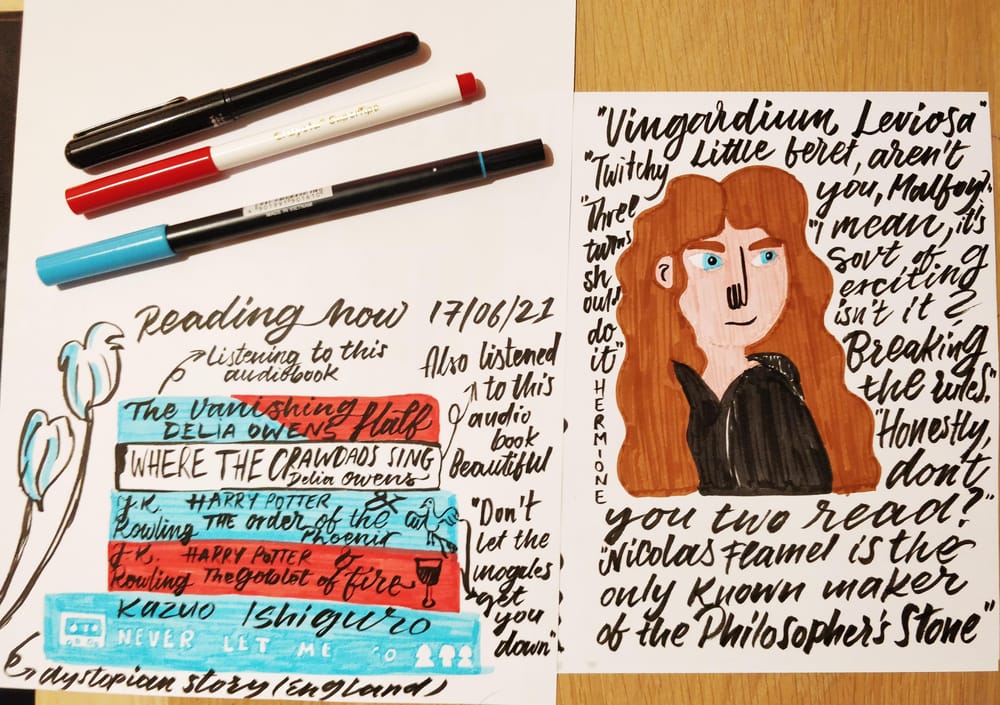 Crayola SuperTips
Reading now 17/06/21
Listening to this
audiobook
Also listened
to this
audio
book
Beautiful
The Vanishing Half
DELIA OWENS
WHERE THE CRAWDADS SING
Delia Owens
J.K. HARRY POTTER &
Rowling THE order of the
Phoenix
J.K. HARRY POTTER &
Rowling The Goblet of fire
Kazuo Ishiguro
NEVER LET ME GO
"Don't
let the
mogules
get
you
down"
dystopian story (England)
"Vingardium Leviosa"
"Twitchy little feret, aren't
you, Malfoy?"
"Three
turns
sh
ould
do
it"
HERMIONE
"I mean, it's
sort of
exciting
isn't it?
Breaking
the rules."
"Honestly,
don't
you two read?"
"Nicolas Flamel is the
only known maker
of the Philosopher's Stone"